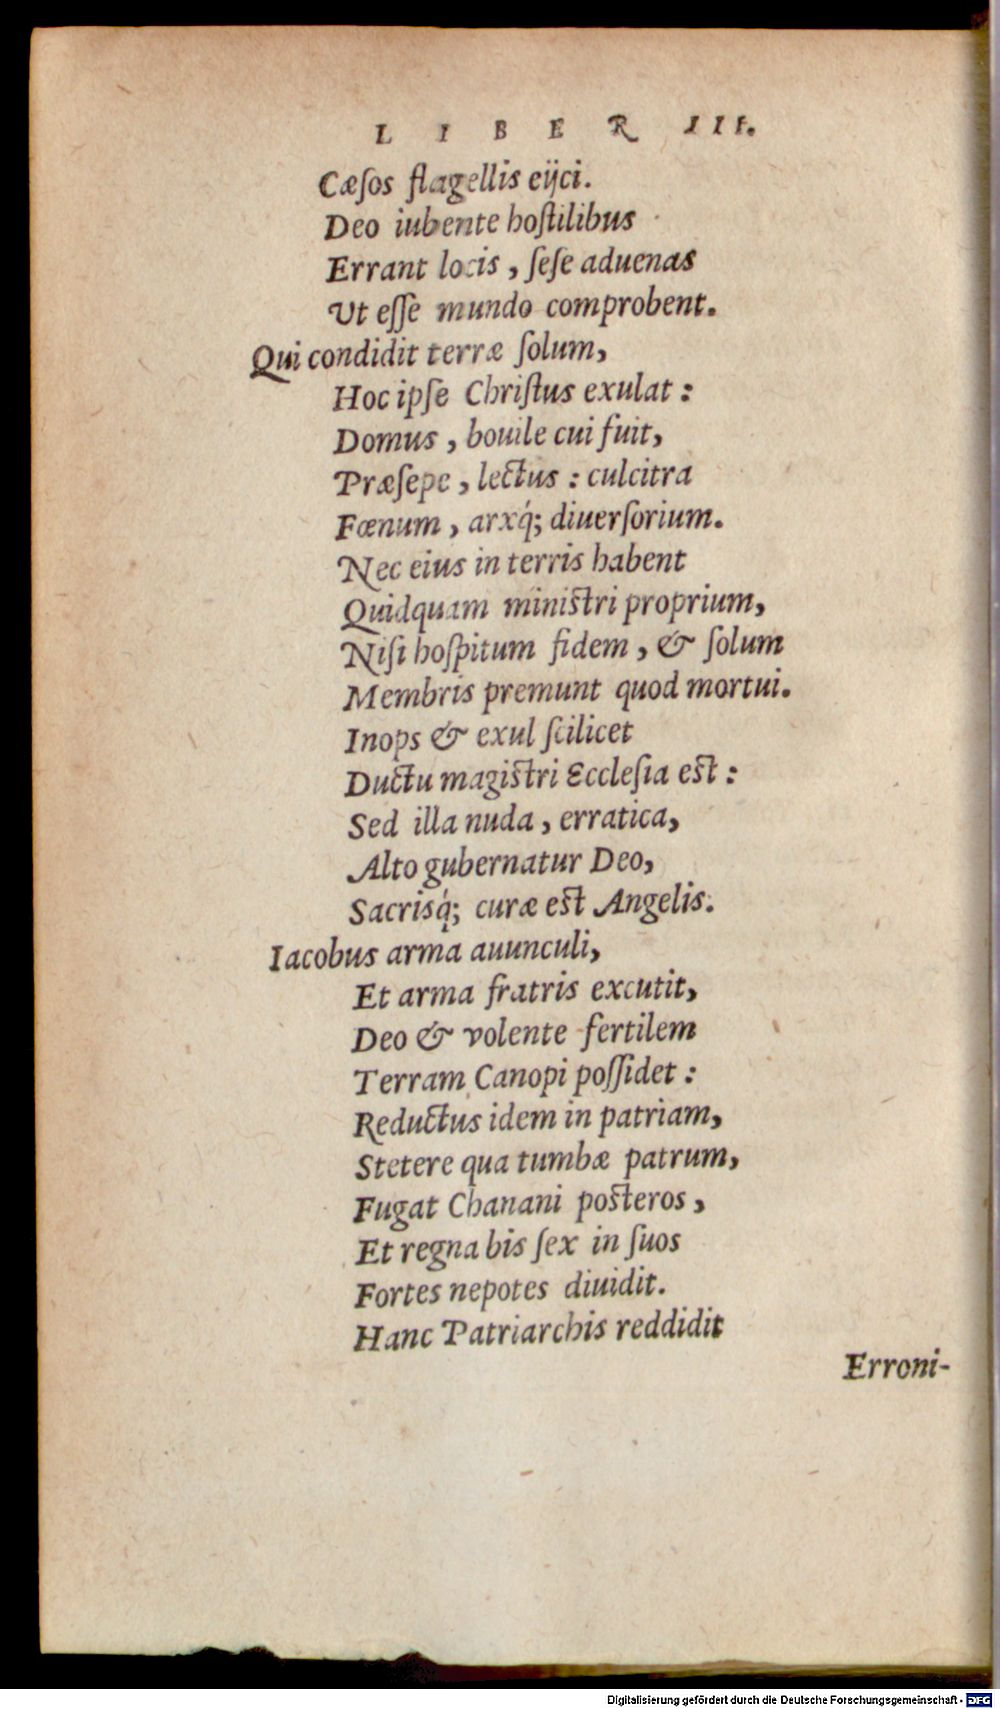 LIBER III.
Cæſos flagellis eijci.
Deo iubente hoſtilibus
Errant locis, ſeſe aduenas
Ut eſſe mundo comprobent.
Qui condidit terræ ſolum,
Hoc ipſe Chriſtus exulat:
Domus, bouile cui fuit,
Præſepe, lectus: culcitra
Fœnum, arxq́; diuerſorium.
Nec eius in terris habent
Quidquam miniſtri proprium,
Niſi hoſpitum fidem, & ſolum
Membris premunt quod mortui.
Inops & exul ſcilicet
Ductu magiſtri Eccleſia eſt:
Sed illa nuda, erratica,
Alto gubernatur Deo,
Sacrisq́; curæ eſt Angelis.
Iacobus arma auunculi,
Et arma fratris excutit,
Deo & volente fertilem
Terram Canopi poſſidet:
Reductus idem in patriam,
Stetere qua tumbæ patrum,
Fugat Chanani poſteros,
Et regna bis ſex in ſuos
Fortes nepotes diuidit.
Hanc Patriarchis reddidit
Erroni-
Digitalisierung gefördert durch die Deutsche Forschungsgemeinschaft - DFG